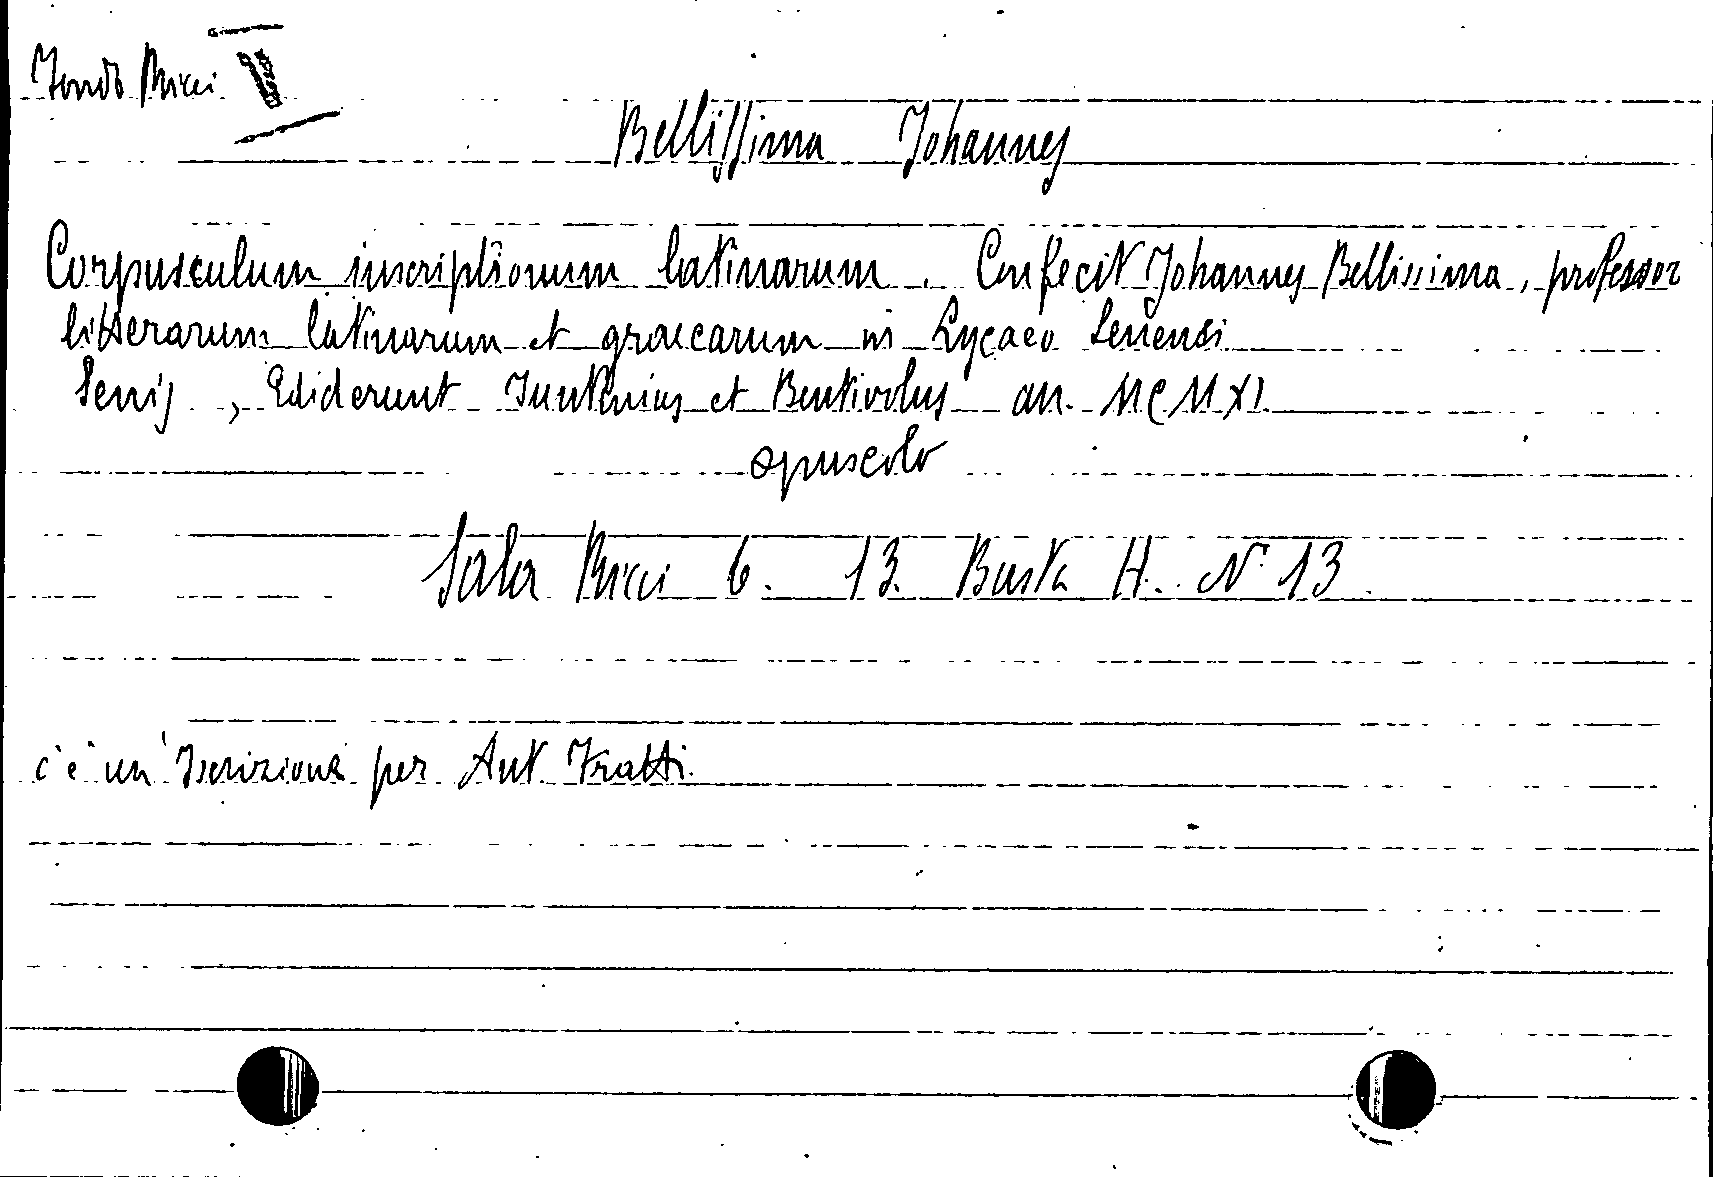 Fondo Ricci V
Bellissima Johannes
Corpusculum inscriptionum latinarum. Confecit Johannes Bellissima, professor
litterarum latinarum et graecarum in Lycaeo Senensi
Senis, Ediderunt Juntinius et Bentivolus an. MCMXI
opuscolo
Sala Ricci 6. 13. Busta H. N. 13
c'è un'Iscrizione per Ant Fratti.